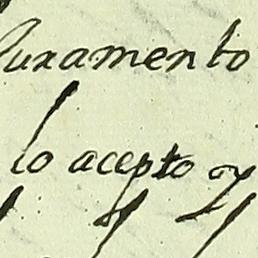 Juramento
lo acepto y